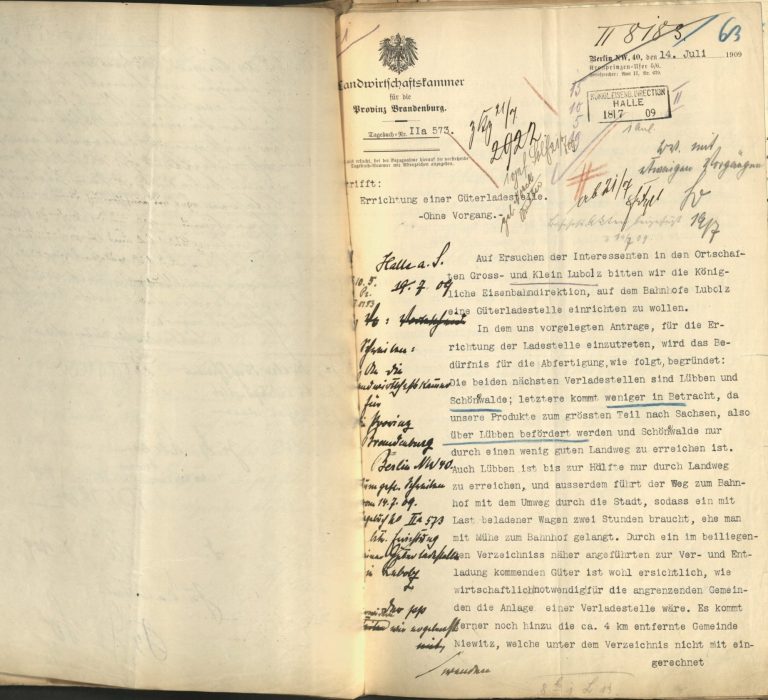 II 8183.
63
Landwirtschaftskammer
für die
Provinz Brandenburg.
Tagebuch-Nr. IIa 573.
Berlin NW. 40, den 14. Juli 1909
Kronprinzen-Ufer 5/6.
KÖNIGL. EISENB. DIRECTION
HALLE
18 7 09
z Kg 21/7
2922
wv. mit
etwaigen Vorgängen
19/7
trifft:
Errichtung einer Güterladestelle.
-Ohne Vorgang.-
Auf Ersuchen der Interessenten in den Ortschaf-
ten Gross- und Klein Lubolz bitten wir die König-
liche Eisenbahndirektion, auf dem Bahnhofe Lubolz
eine Güterladestelle einrichten zu wollen.
In dem uns vorgelegten Antrage, für die Er-
richtung der Ladestelle einzutreten, wird das Be-
dürfnis für die Abfertigung, wie folgt, begründet:
Die beiden nächsten Verladestellen sind Lübben und
Schönwalde; letztere kommt weniger in Betracht, da
unsere Produkte zum grössten Teil nach Sachsen, also
über Lübben befördert werden und Schönwalde nur
durch einen wenig guten Landweg zu erreichen ist.
Auch Lübben ist bis zur Hälfte nur durch Landweg
zu erreichen, und ausserdem führt der Weg zum Bahn-
hof mit dem Umweg durch die Stadt, sodass ein mit
Last beladener Wagen zwei Stunden braucht, ehe man
mit Mühe zum Bahnhof gelangt. Durch ein im beiliegen-
den Verzeichniss näher angeführten zur Ver- und Ent-
ladung kommenden Güter ist wohl ersichtlich, wie
wirtschaftlich notwendig für die angrenzenden Gemein-
den die Anlage einer Verladestelle wäre. Es kommt
ferner noch hinzu die ca. 4 km entfernte Gemeinde
Niewitz, welche unter dem Verzeichnis nicht mit ein-
gerechnet
Halle a. S.
19. 7. 09
Schreiben:
An die
Landwirtschaftskammer
für
Provinz
Brandenburg
Berlin NW 40
Zum gefl. Schreiben
vom 14.7.09.
IIa 573
btr. Errichtung
einer Güterladestelle
in Lubolz
wenden